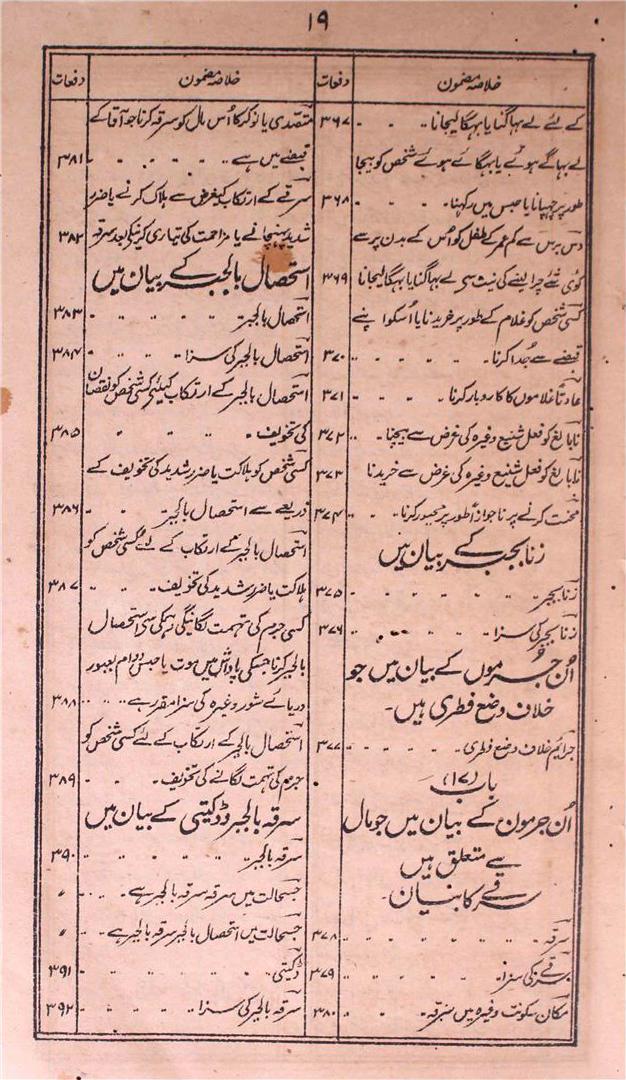 ۱۹
خلاصہ مضمون
دفعات
کے لئے لے بہاگنا یا بہگا لیجانا ۳۶۷
لے بہاگے ہوئے یا بہگائے ہوئے شخص کو بیجا
طور پر چہپانا یا حبس میں رکہنا ۳۶۸
دس برس سے کم عمر کے طفل کو اُس کے بدن پر سے
کوئی شے چرا لینے کی نیت سی لے بہاگنا یا بہگا لیجانا ۳۶۹
کسی شخص کو غلام کے طور پر خریدنا یا اُسکو اپنے
قبضے سے جُدا کرنا ۳۷۰
عادتاً غلاموں کا کاروبار کرنا ۳۷۱
نابالغ کو فعل شنیع وغیرہ کی غرض سے بیچنا ۳۷۲
نابالغ کو فعل شنیع وغیرہ کی غرض سے خریدنا ۳۷۳
محنت کرنے پر ناجواز طور پر مجبور کرنا ۳۷۴
زنا بجبر کے بیان میں
زنا بجبر ۳۷۵
زنا بجبر کی سزا ۳۷۶
اُن جرموں کے بیان میں جو
خلاف وضع فطری ہیں۔
جرائم خلاف وضع فطری ۳۷۷
باب (۱۷)
اُن جرمون کے بیان میں جو مال
سے متعلق ہیں
سرقے کا بیان
سرقہ ۳۷۸
سرقے کی سزا ۳۷۹
مکان سکونت وغیرہ میں سرقہ ۳۸۰
خلاصہ مضمون
دفعات
متصدی یا نوکر کا اُس مال کو سرقہ کرنا جو آقا کے
قبضے میں ہے ۳۸۱
سرقے کے ارتکاب کیغرض سے ہلاک کرنے یا ضرر
شدید پہنچانے یا مزاحمت کی تیاری کرنیکے بعد سرقہ ۳۸۲
استحصال بالجبر کے بیان میں
استحصال بالجبر ۳۸۳
استحصال بالجبر کی سزا ۳۸۴
استحصال بالجبر کے ارتکاب کیلئے کسی شخص کو نقصان
کی تخویف ۳۸۵
کسی شخص کو ہلاکت یا ضرر شدید کی تخویف کے
ذریعے سے استحصال بالجبر ۳۸۶
استحصال بالجبر کے ارتکاب کے لئے کسی شخص کو
ہلاکت یا ضرر شدید کی تخویف ۳۸۷
کسی جرم کی تہمت لگانیکی دہمکی سی استحصال
بالجبر کرنا جسکی پاداش میں موت یا حبس دوام بعبور
دریائے شور وغیرہ کی سزا مقرر ہے ۳۸۸
استحصال بالجبر کے ارتکاب کے لئے کسی شخص کو
جرم کی تہمت لگانے کی تخویف ۳۸۹
سرقہ بالجبر و ڈکیتی کے بیان میں
سرقہ بالجبر ۳۹۰
جسحالت میں سرقہ سرقہ بالجبر ہے۔ ״
جسحالت میں استحصال بالجبر سرقہ بالجبر ہے۔ ״
ڈکیتی ۳۹۱
سرقہ بالجبر کی سزا ۳۹۲